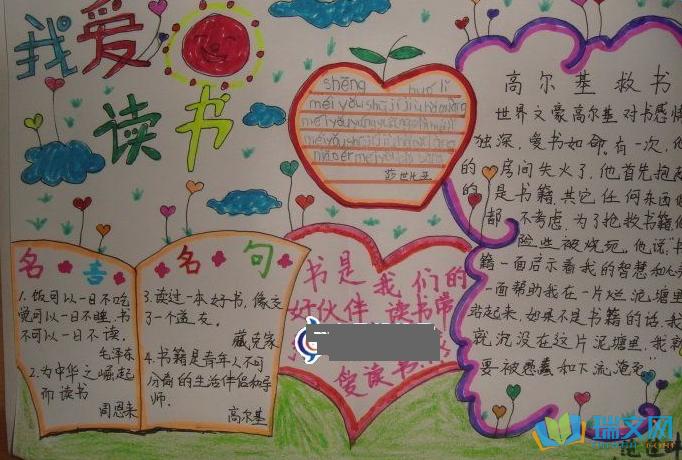 我爱
读书
shēng huó lǐ
méi yǒu shū jí jiù hǎo xiàng
莎士比亚
高尔基救书
世界文豪高尔基对书感情
独深,爱书如命。有一次,他
的房间失火了,他首先抱起
的是书籍,其它任何东西他
都不考虑。为了抢救书籍,他
险些被烧死。他说:"书
籍一面启示着我的智慧和心灵,
一面帮助我在一片烂泥塘里
站起来,如果不是书籍的话,我
就沉没在这片泥塘里,我就
要被愚蠢和下流淹死"
名言名句
1.饭可以一日不吃
觉可以一日不睡,书
不可以一日不读。
毛泽东
2.为中华之崛起
而读书
周恩来
3.读过一本好书,像交
了一个益友。
臧克家
4.书籍是青年人不可
分离的生活伴侣和导
师。
高尔基
书是我们的
好伙伴 读书带
爱读书
瑞文网